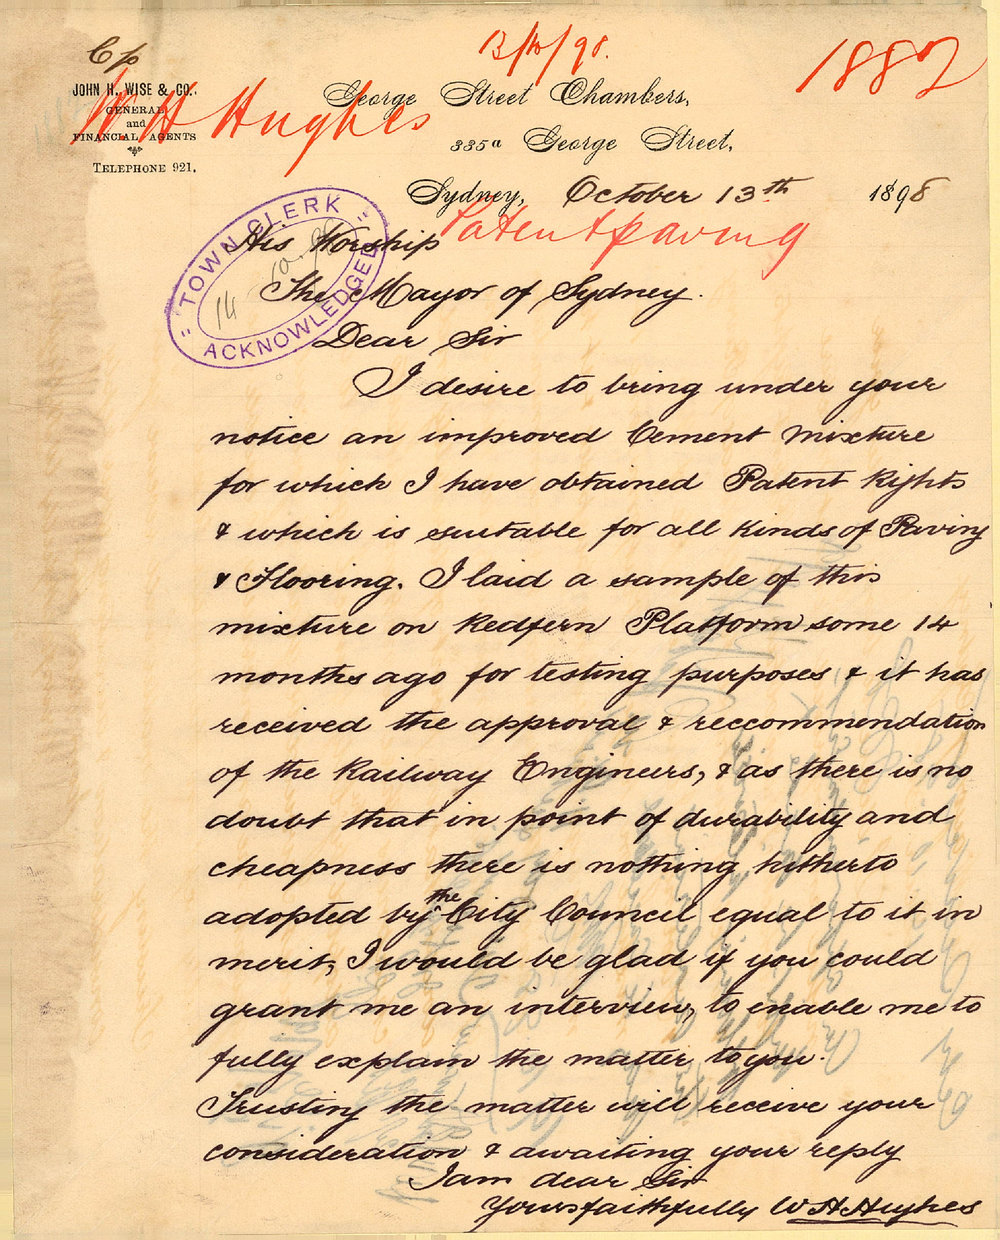 C/o
13/10/98.
1882
JOHN H. WISE & CO.,
GENERAL
and
FINANCIAL AGENTS
TELEPHONE 921.
W. H Hughes
George Street Chambers,
335a George Street,
Sydney, October 13th 1898
Patent paving
"TOWN CLERK"
14 10.98
ACKNOWLEDGED
His Worship
The Mayor of Sydney.
Dear Sir
I desire to bring under your
notice an improved Cement Mixture
for which I have obtained Patent Rights
& which is suitable for all kinds of Paving
& Flooring. I laid a sample of this
mixture on Redfern Platform some 14
months ago for testing purposes & it has
received the approval & reccommendation
of the Railway Engineers, & as there is no
doubt that in point of durability and
cheapness there is nothing hitherto
adopted by the City Council equal to it in
merit, I would be glad if you could
grant me an interview, to enable me to
fully explain the matter to you.
Trusting the matter will receive your
consideration & awaiting your reply
I am dear Sir
Yours faithfully W H Hughes